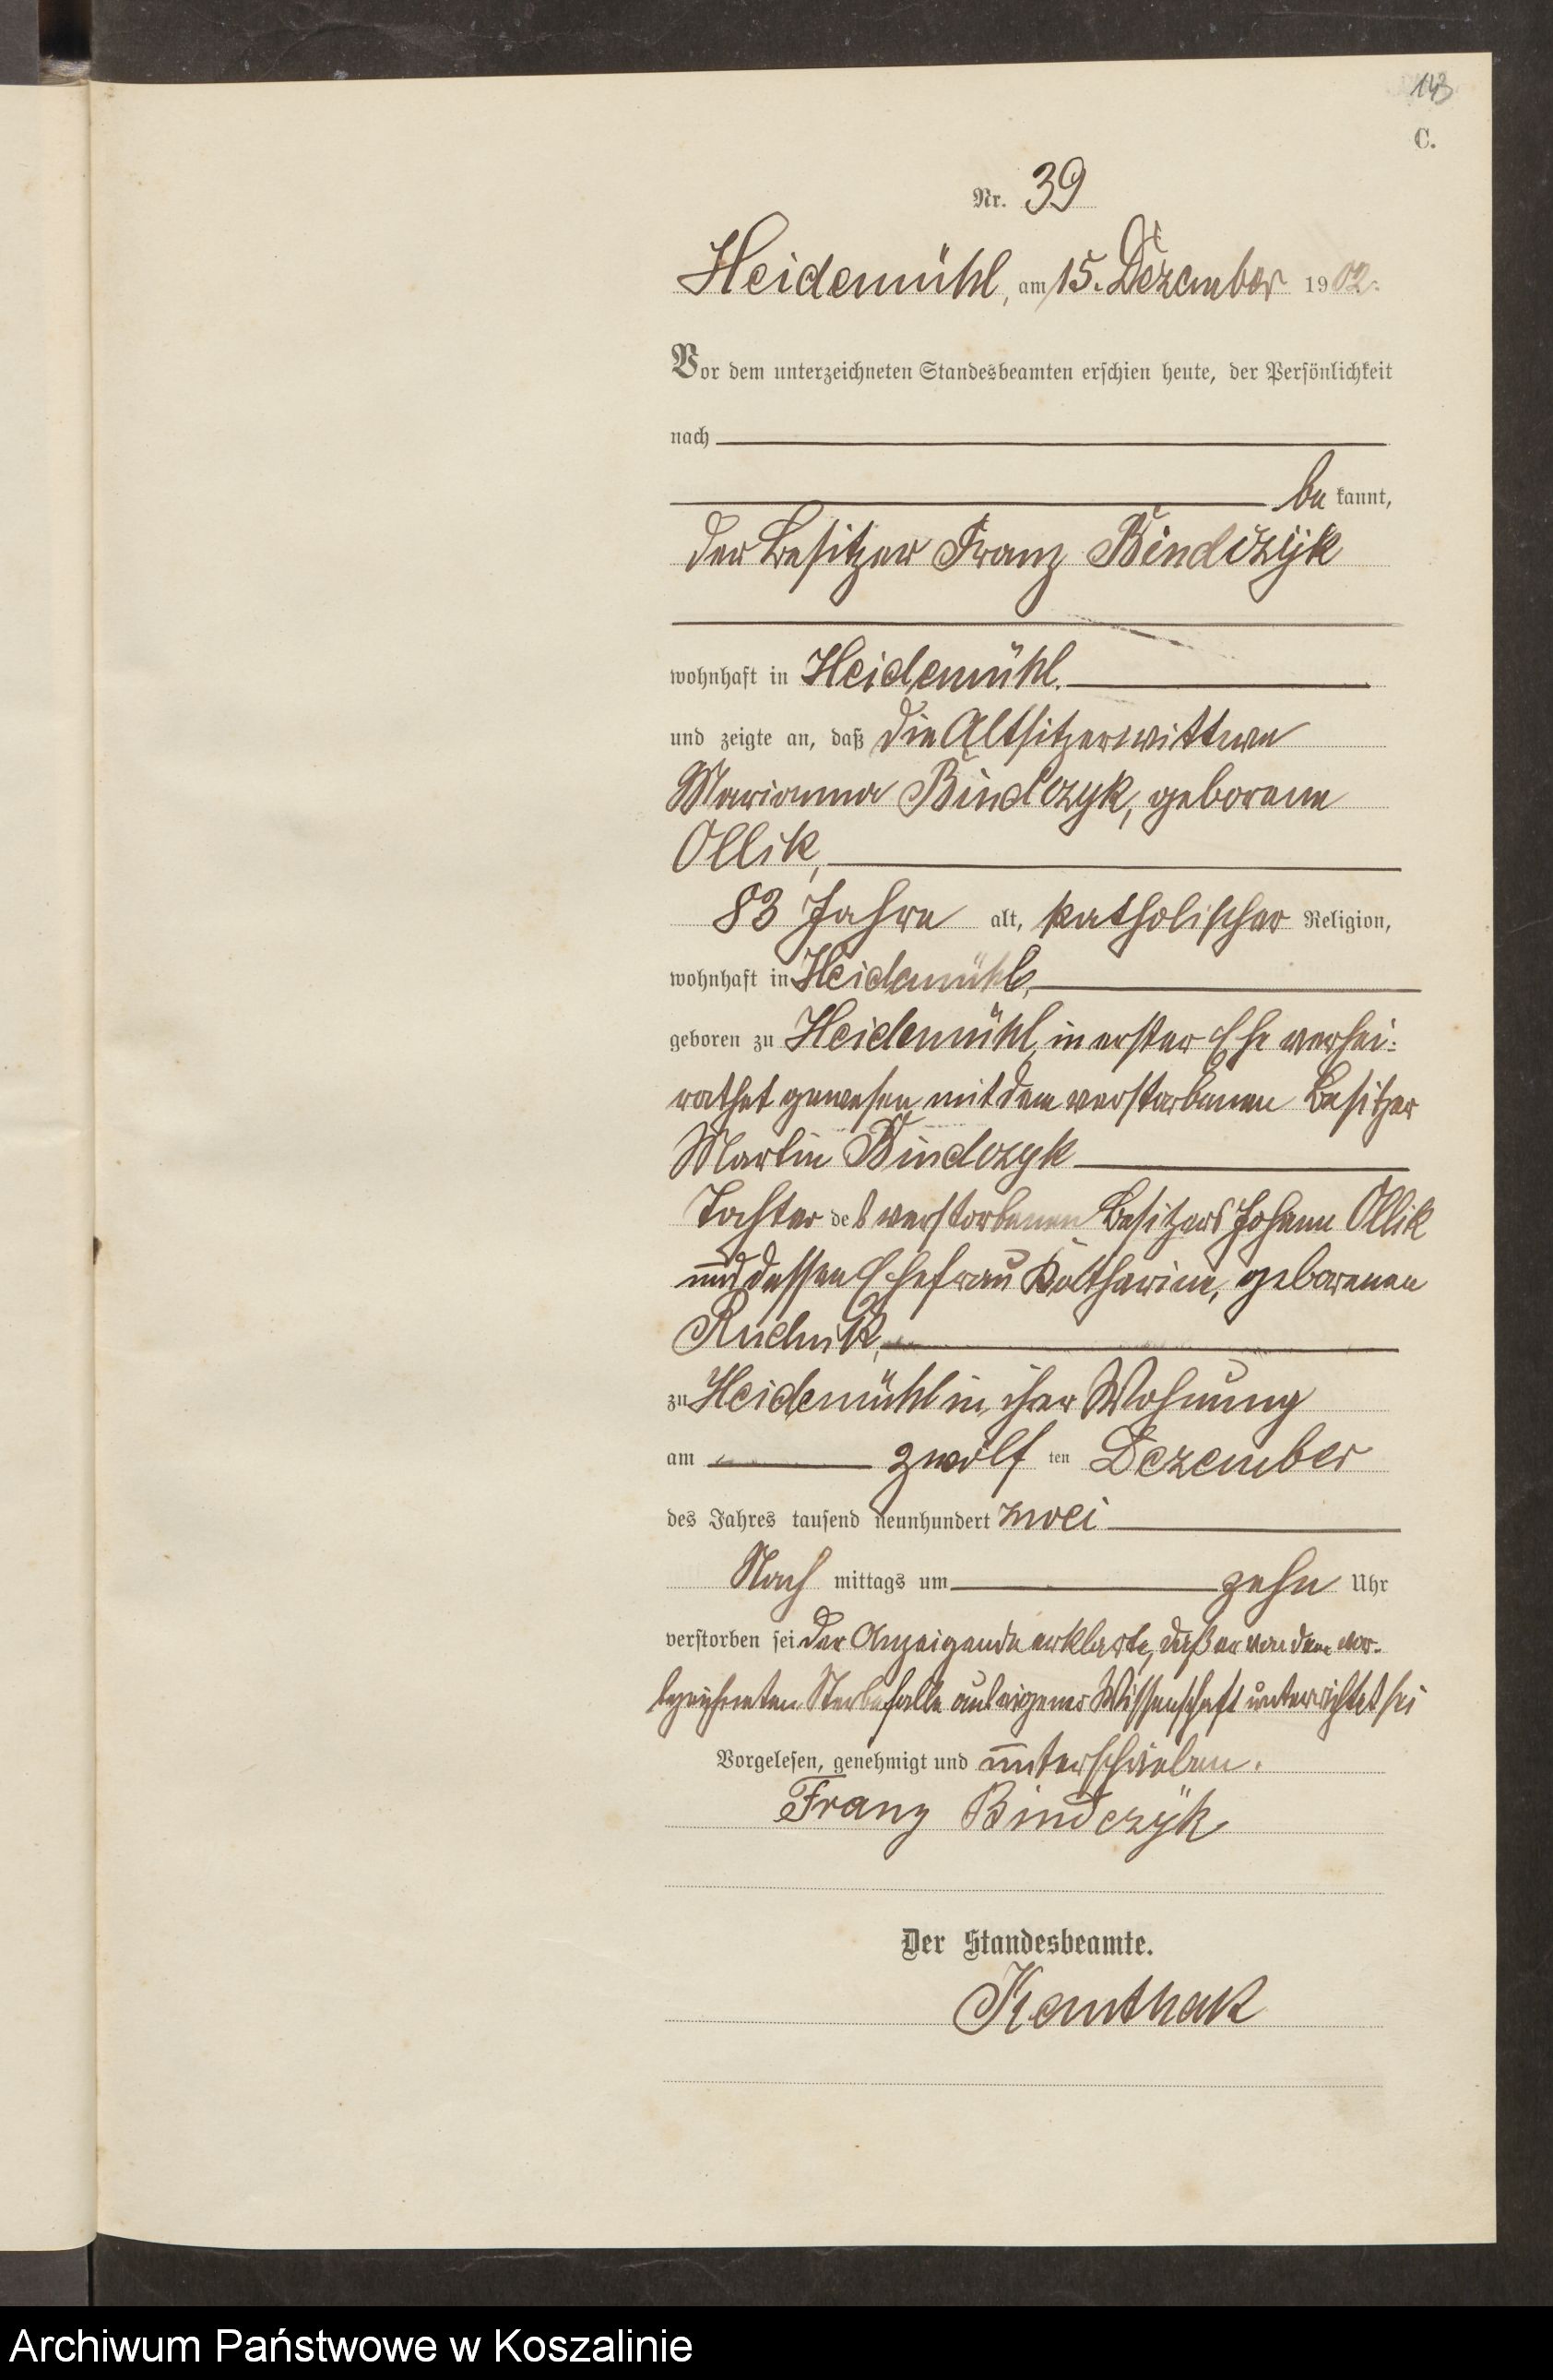 143
C.
Nr. 39
Heidemühl, am 15. Dezember 1902.
Vor dem unterzeichneten Standesbeamten erschien heute, der Persönlichkeit
nach
be kannt,
der Besitzer Franz Bindczÿk
wohnhaft in Heidemühl.
und zeigte an, daß die Altsitzerwittwe
Marianna Bindczyk, geborene
Ollik,
83 Jahre alt, katholischer Religion,
wohnhaft in Heidemühl,
geboren zu Heidemühl, in erster Ehe verhei-
rathet gewesen mit dem verstorbenen Besitzer
Martin Bindczyk
Tochter des verstorbenen Besitzers Johann Ollik
und dessen Ehefrau Katharina, geborenen
Rudnik,
zu Heidemühl in ihrer Wohnung
am zwölf ten Dezember
des Jahres tausend neunhundert zwei
Nach mittags um zehn Uhr
verstorben sei Der Anzeigende erklärte, daß er von dem vor-
bezeichneten Sterbefalle aus eigener Wissenschaft unterrichtet sei
Vorgelesen, genehmigt und unterschrieben.
Franz Bindczÿk
Der Standesbeamte.
Archiwum Państwowe w Koszalinie